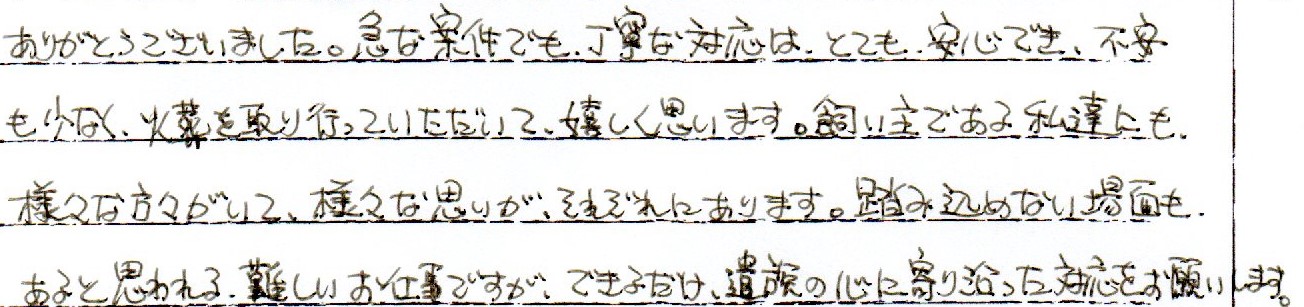 ありがとうございました。急な案件でも、丁寧な対応は、とても、安心でき、不安
も少なく、火葬を取り行っていただいて、嬉しく思います。飼い主である私達にも、
様々な方々がいて、様々な思いが、それぞれにあります。踏み込めない場面も、
あると思われる、難しいお仕事ですが、できるだけ、遺族の心に寄り沿った対応をお願いします。